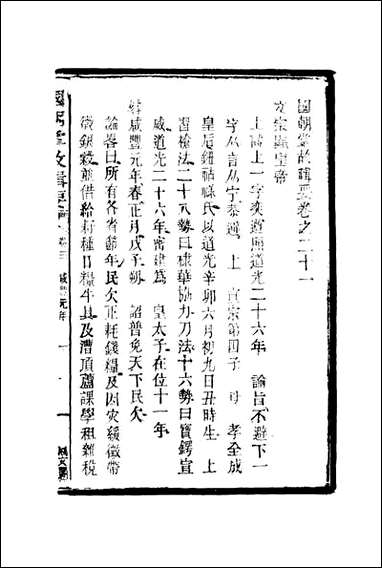 國朝掌故輯要卷之二十一
文宗顯皇帝
上諱上一字奕遵照道光二十六年 諭旨不避下一
字从言从宁恭避 上 宣宗第四子 母 孝全成
皇后鈕祜祿氏以道光辛卯六月初九日丑時生 上
習槍法二十八勢曰棣華協力刀法十六勢曰寶鍔宣
威道光二十六年密建爲 皇太子在位十一年
咸豐元年春正月戊子朔 詔普免天下民欠
諭畧曰所有各省節年民欠正耗錢糧及因灾緩徵帶
徵銀穀並借給籽種口糧牛具及漕項蘆課學租雜稅
國朝掌故輯要 卷二十一 咸豐元年